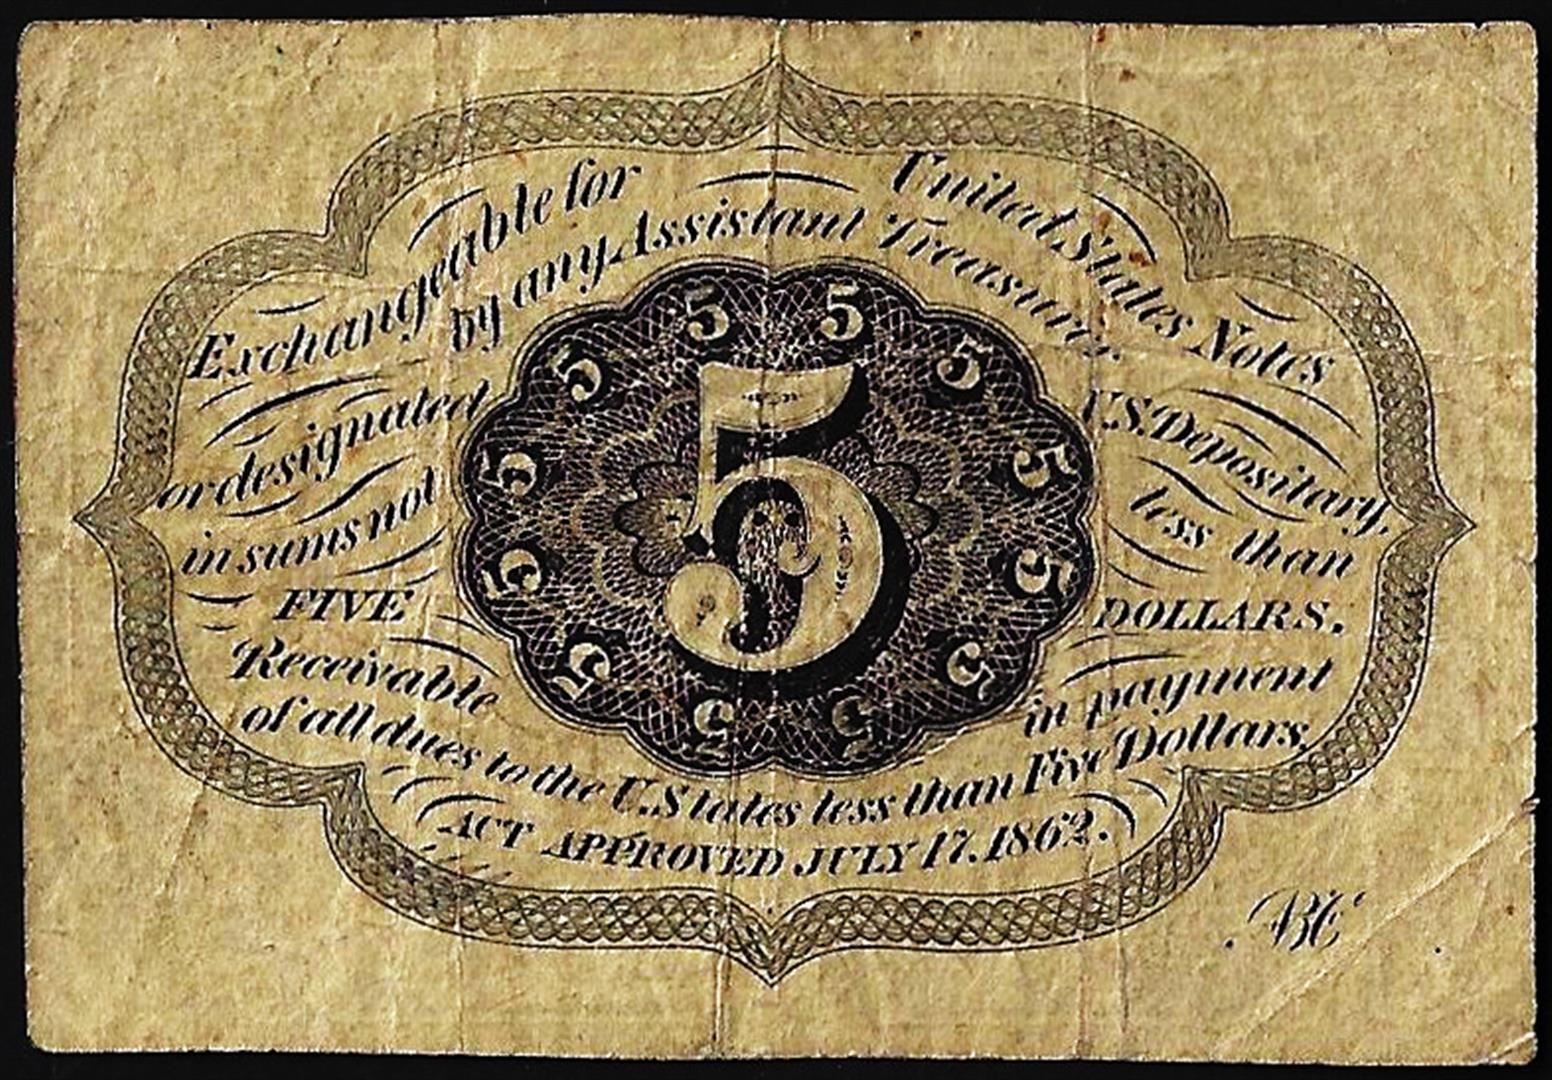 Exchangeable for United States Notes
by any Assistant Treasurer,
or designated U.S. Depositary,
in sums not less than
FIVE DOLLARS.
Receivable in payment
of all dues to the U.States less than Five Dollars,
ACT APPROVED JULY 17.1862.
5
5
5
5
5
5
5
5
5
5
5
5
5